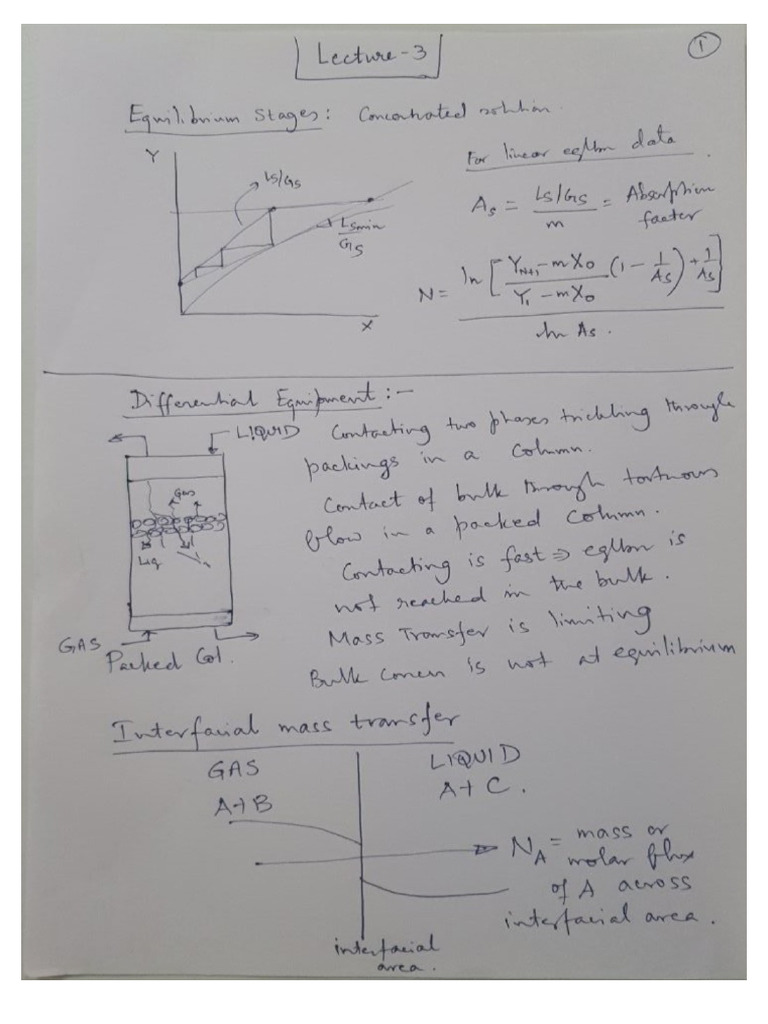 Lecture-3
1
Equilibrium Stages: Concentrated solution.
Y
Ls/Gs
Lsmin/Gs
X
For linear eqlbm data
As = Ls/Gs / m = Absorption factor
N = ln [ (YN+1 - mX0)/(Y1 - mX0) (1 - 1/As) + 1/As ] / ln As.
Differential Equipment :-
LIQUID
Gas
Liq
GAS
Packed Col.
Contacting two phases trickling through
packings in a column.
Contact of bulk through tortuous
flow in a packed column.
Contacting is fast ⇒ eqlbm is
not reached in the bulk.
Mass Transfer is limiting
Bulk concn is not at equilibrium
Interfacial mass transfer
GAS
A+B
LIQUID
A+C.
NA = mass or
molar flux
of A across
interfacial area.
interfacial
area.